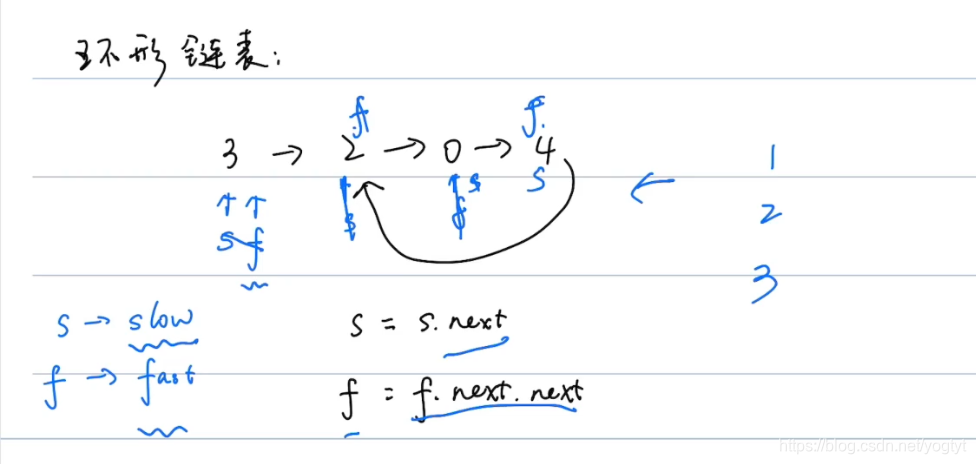 环形链表:
f f.
3 → 2 → 0 → 4 1
↑ ↑ s s ← 2
s f s f
3
s → slow s = s.next
f → fast f = f.next.next
https://blog.csdn.net/yogtyf